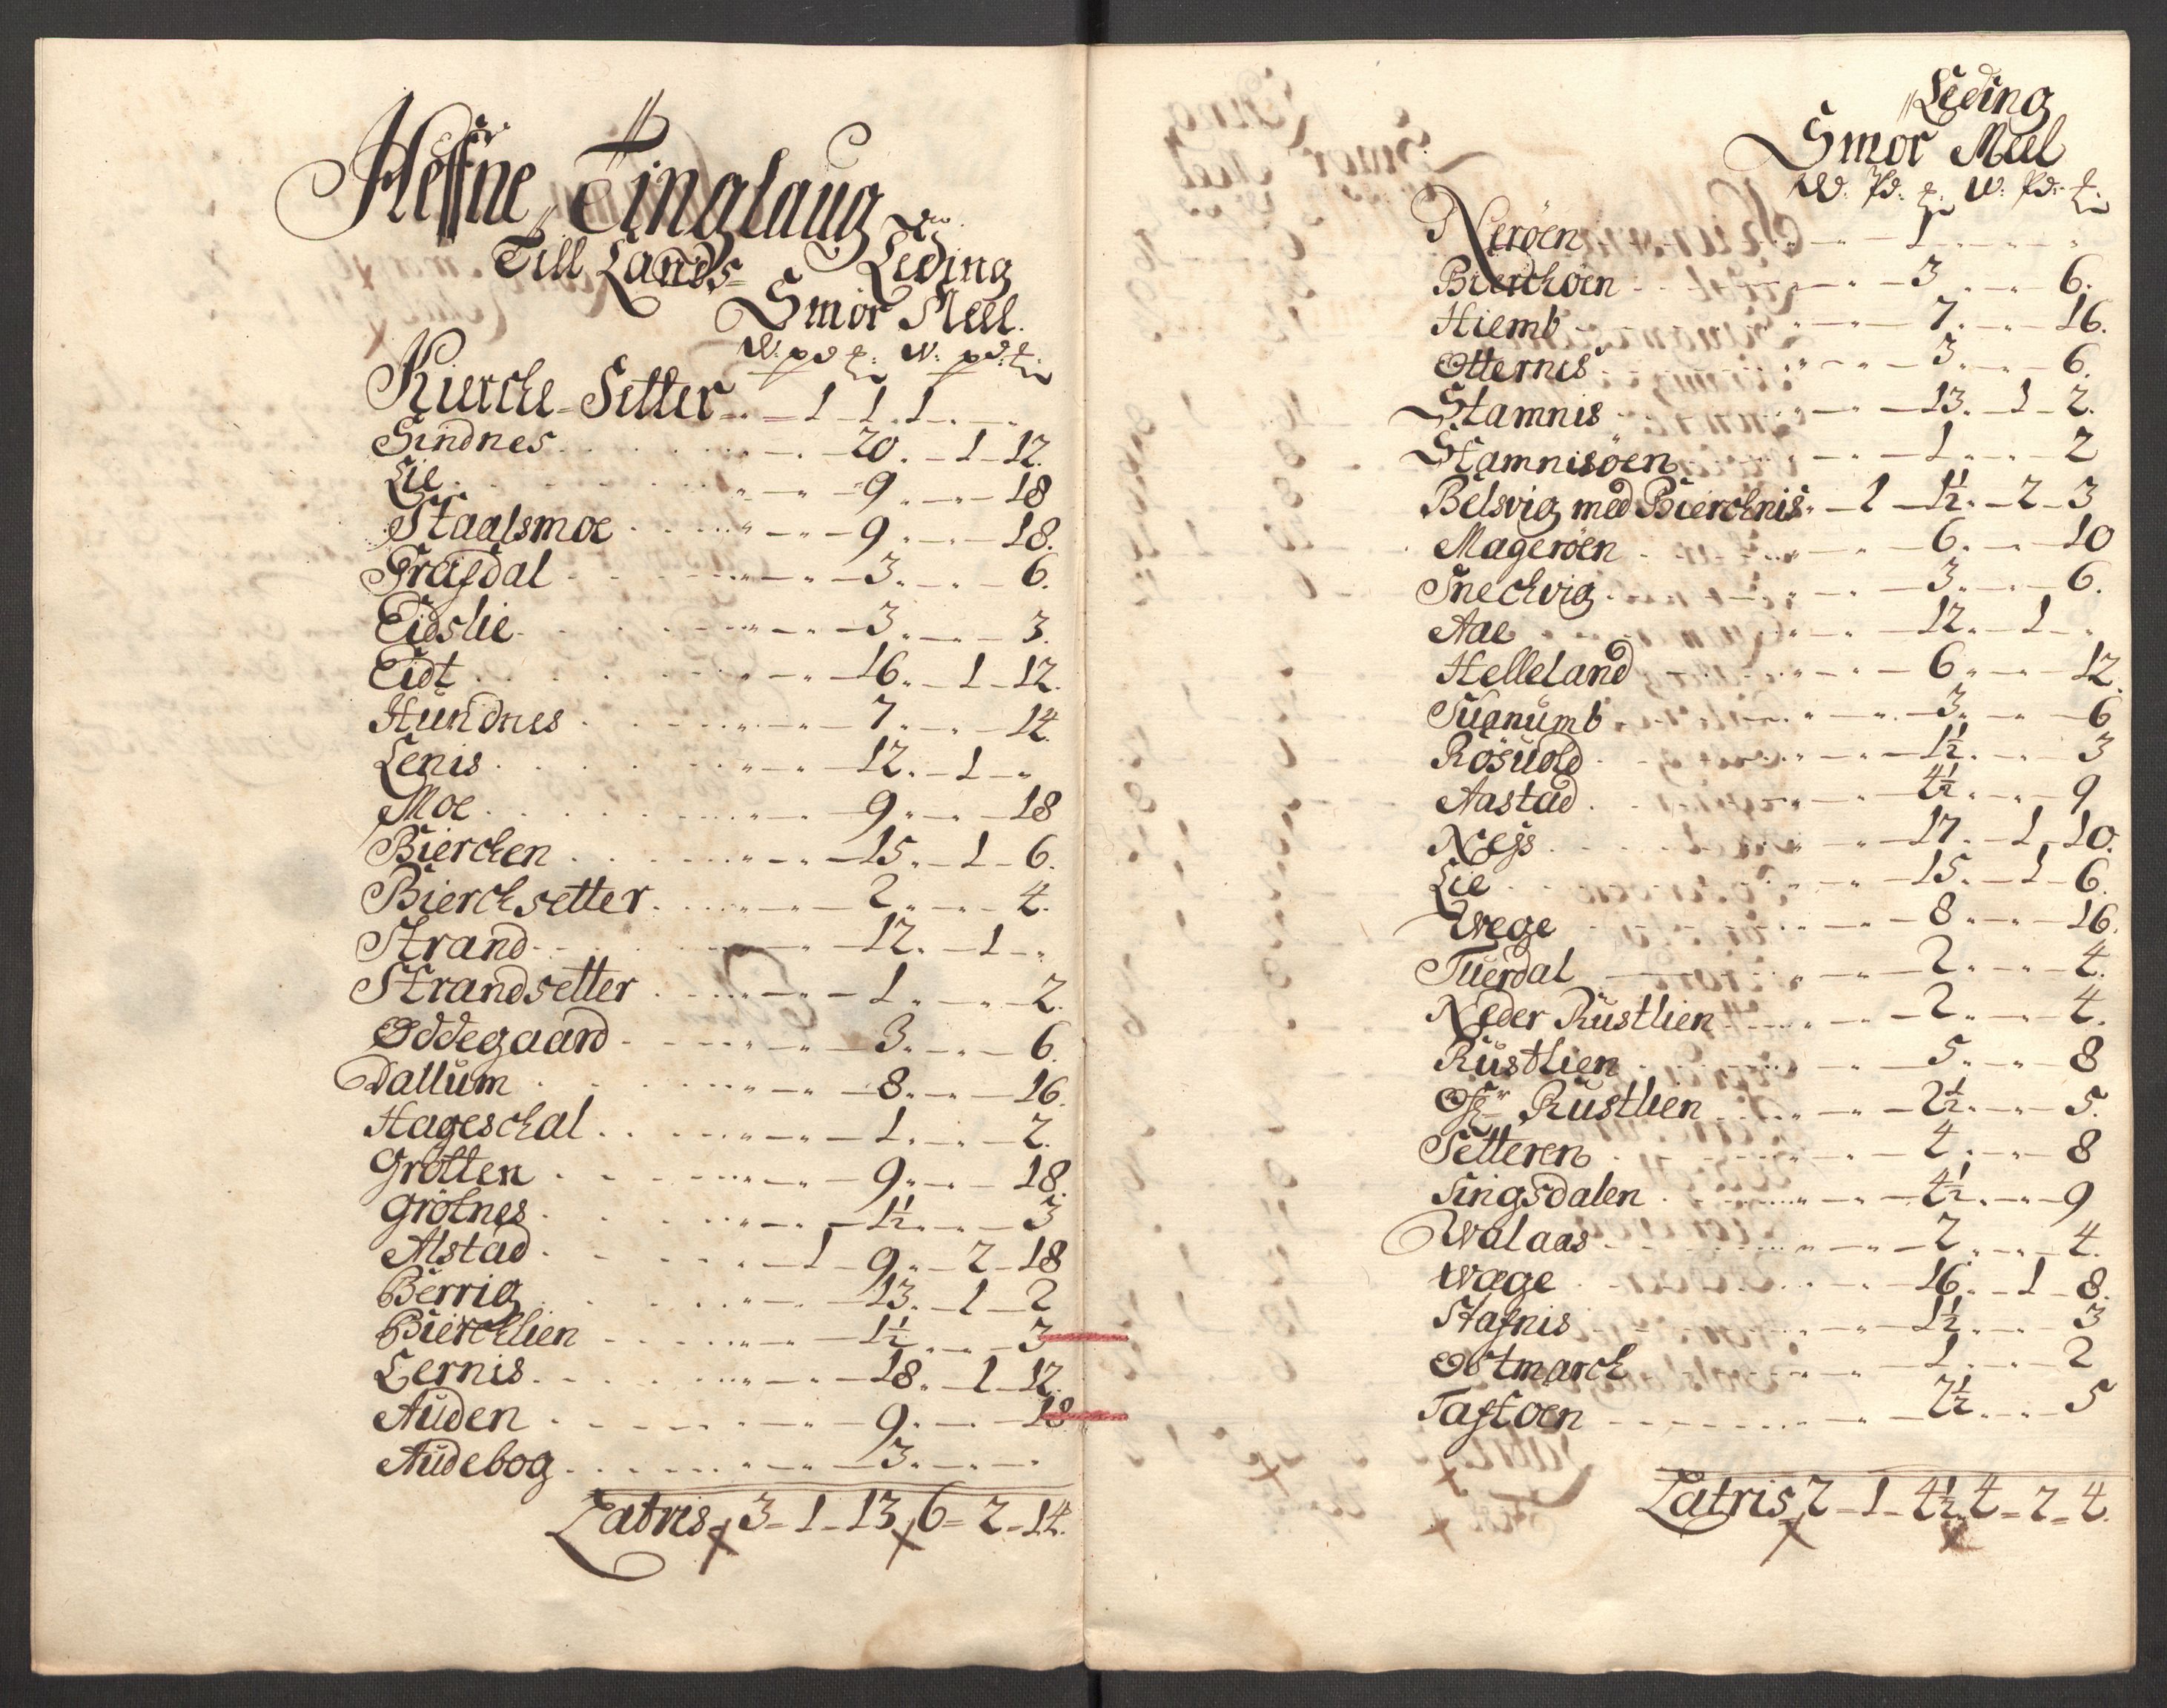 Heffne Tinglaug
Till Lands Leding
Smör Meel.
W: pd ℔: W: pd: ℔:
Kierche-Setter " — 1 — 1. 1 " — "
Sindnes " — " — 20. — 1 — 12.
Lie " — " — 9 " — " — 18
Staalsmoe " — " — 9 " — " — 18.
Grafdal " — " — 3. — " — 6.
Eidslie " — " — 3 " — " — 3.
Eidt " — " — 16. — 1 — 12.
Hundnes " — " — 7 " — " — 14.
Lenis " — " — 12. — 1 — "
Moe " — " — 9. — " — 18
Bierchen " — " — 15. — 1 — 6.
Bierchsetter " — " — 2 " — " — 4.
Strand " — " — 12. — 1 — "
Strandsetter " — " — 1 " — " — 2.
Oddegaard " — " — 3. — " — 6.
Dallum " — " — 8. — " — 16.
Hageschal " — " — 1. — " — 2.
Grotten " — " — 9. — " — 18.
Grötnes " — " — 1½ " — " — 3
Alstad " — 1 — 9. — 2 — 18
Berrig " — " — 13. — 1 — 2
Bierchlien " — " — 1½ " — " — 3
Lernis " — " — 18. — 1 — 12.
Auden " — " — 9. — " — 18.
Audebog " — " — 3. — " — "
Latris 3 — 1 — 13 6 = 2 = 14.
Leding
Smör Meel
W: Pd: ℔: W: Pd: ℔:
Neröen " — " — 1 " — " — "
Bierchöen " — " — 3 " — " — 6.
Hiemb " — " — 7. — " — 16.
Otternes " — " — 3 " — " — 6.
Stamnis " — " — 13. — 1 — 2.
Stamnisöen " — " — 1 " — " — 2
Belsvig med Bierchnis " — 1 — 1½ " — 2 — 3
Mageröen " — " — 6. — " — 10
Snechvig " — " — 3. — " — 6.
Aae " — " — 12. — 1 — "
Helleland " — " — 6. — " — 12.
Suanumb " — " — 3. — " — 6
Rösuold " — " — 1½ " — " — 3
Aastad " — " — 4½ " — " — 9
Næss " — " — 17. — 1 — 10.
Lie " — " — 15. — 1 — 6.
Wege " — " — 8 " — " — 16.
Tuerdal " — " — 2. — " — 4.
Neder Rustlien " — " — 2. — " — 4.
Rustlien " — " — 5. — " — 8
Rustlien " — " — 2½ " — " — 5.
Setteren " — " — 4. — " — 8
Singsdalen " — " — 4½ " — " — 9
Walaas " — " — 2 " — " — 4.
Wage " — " — 16. — 1 — 8.
Stafnis " — " — 1½ " — " — 3
Ostmarch " — " — 1 " — " — 2
Taftöen " — " — 2½ " — " — 5
Latris 2 — 1 — 4½ 4 — 2 — 4.